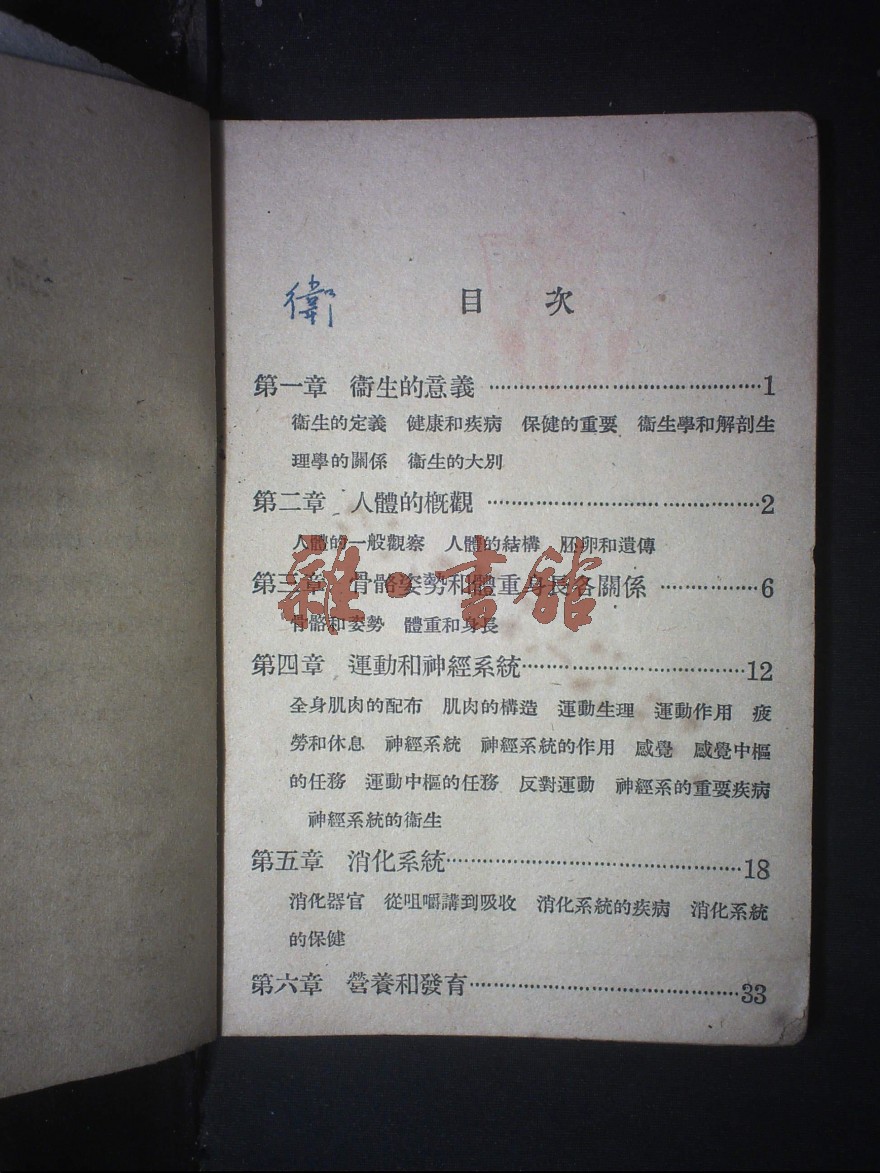 衞
目次
第一章 衞生的意義 ……………………………………… 1
衞生的定義 健康和疾病 保健的重要 衞生學和解剖生
理學的關係 衞生的大別
第二章 人體的槪觀 ……………………………………… 2
人體的一般觀察 人體的結構 胚卵和遺傳
第三章 骨骼姿勢和體重身長各關係 …………… 6
骨骼和姿勢 體重和身長
雜·書館
第四章 運動和神經系統 ……………………………… 12
全身肌肉的配布 肌肉的構造 運動生理 運動作用 疲
勞和休息 神經系統 神經系統的作用 感覺 感覺中樞
的任務 運動中樞的任務 反對運動 神經系的重要疾病
神經系統的衞生
第五章 消化系統 ……………………………………… 18
消化器官 從咀嚼講到吸收 消化系統的疾病 消化系統
的保健
第六章 營養和發育 …………………………………… 33